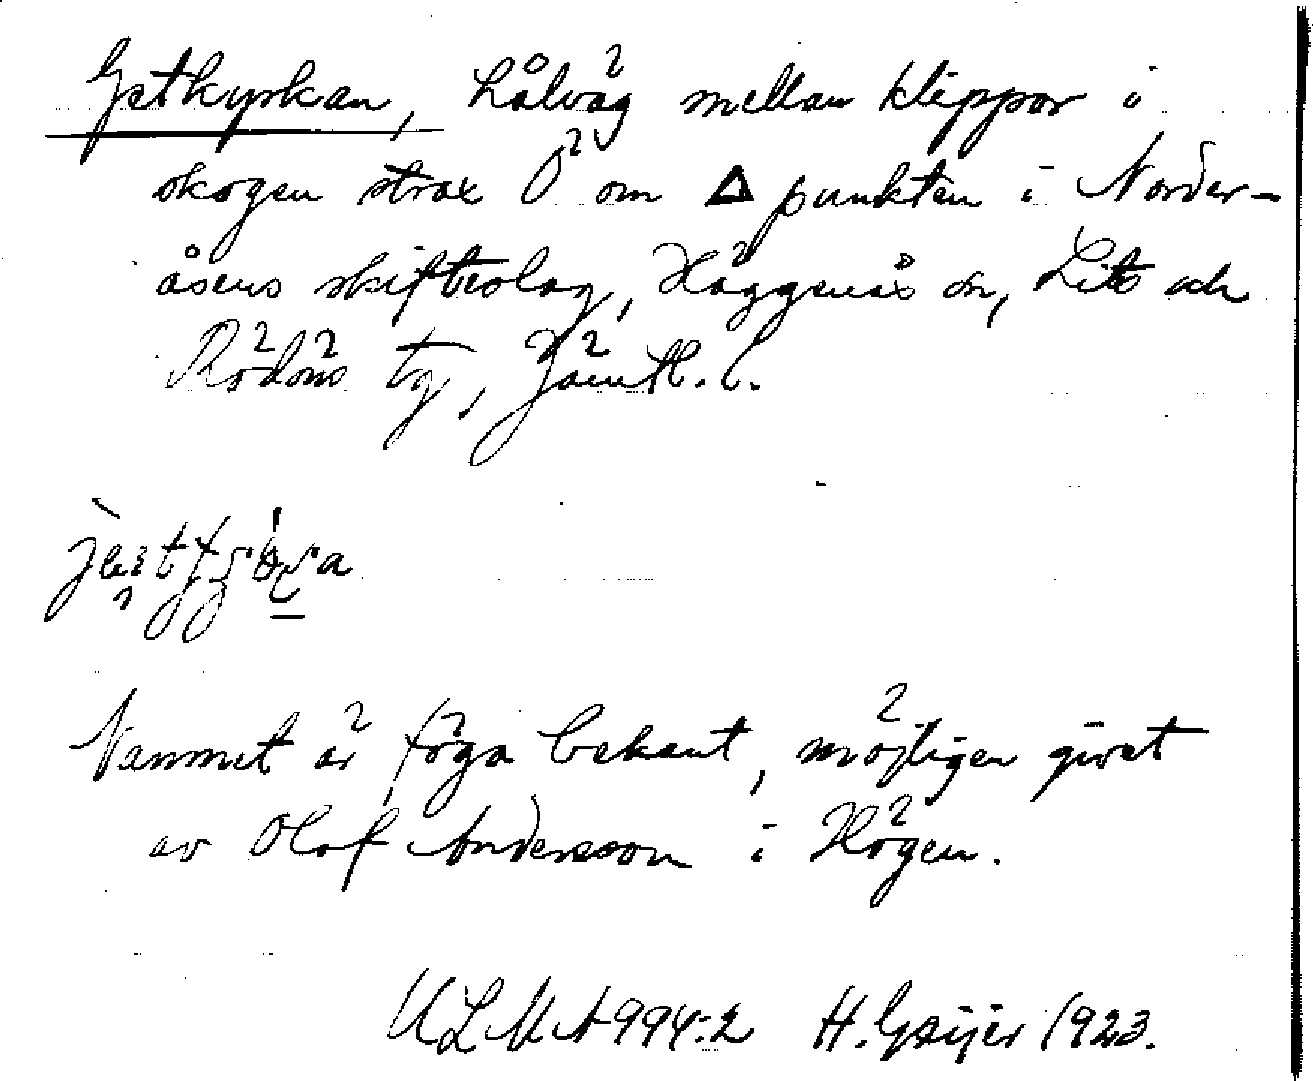 Getkyrkan, hålväg mellan klippor i
skogen strax Ö om Δ punkten i Norder-
åsens skifteslag, Häggenås sn, Lits och
Rödöns tg, Jämtl. l.
Namnet är föga bekant, möjligen givet
av Olof Andersson i Högen.
ULMA 994:2 H. Geijer 1923.